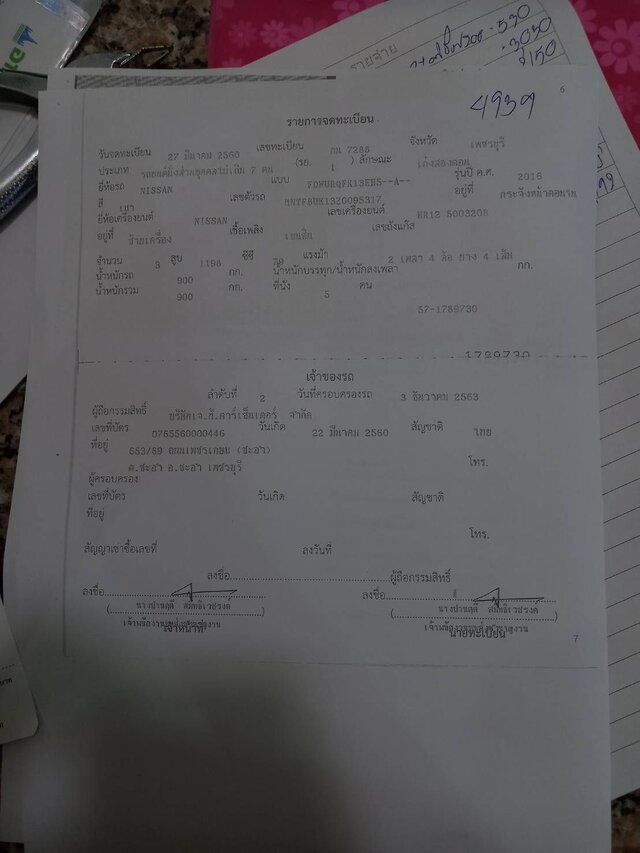 รายจ่าย
530
3030
3150
6
4939
รายการจดทะเบียน
วันจดทะเบียน 27 มีนาคม 2560 เลขทะเบียน กน 7288 จังหวัด เพชรบุรี
ประเภท รถยนต์นั่งส่วนบุคคลไม่เกิน 7 คน (รย. 1 ) ลักษณะ เก๋งสองตอน
ยี่ห้อรถ NISSAN แบบ รุ่นปี ค.ศ. 2016
สี เทา เลขตัวรถ อยู่ที่
ยี่ห้อเครื่องยนต์ NISSAN เลขเครื่องยนต์ HR12 500320B
อยู่ที่ ข้ายเครื่อง เชื้อเพลิง เบนซิน เลขถังแก๊ส
จำนวน 3 สูบ 1198 ซีซี แรงม้า 2 เพลา 4 ล้อ ยาง 4 เส้น
น้ำหนักรถ 900 กก. น้ำหนักบรรทุก/น้ำหนักลงเพลา กก.
น้ำหนักรวม 900 กก. ที่นั่ง 5 คน
57-1789730
1789730
เจ้าของรถ
ลำดับที่ 2 วันที่ครอบครองรถ 3 ธันวาคม 2563
ผู้ถือกรรมสิทธิ์ บริษัทเจ.ที.คาร์เซ็นเตอร์ จำกัด
เลขที่บัตร 0765560000446 วันเกิด 22 มีนาคม 2560 สัญชาติ ไทย
ที่อยู่ 653/69 ถนนเพชรเกษม (ชะอำ)
ต.ชะอำ อ.ชะอำ เพชรบุรี โทร.
ผู้ครอบครอง
เลขที่บัตร วันเกิด สัญชาติ
ที่อยู่
โทร.
สัญญาเช่าซื้อเลขที่ ลงวันที่
ลงชื่อ ผู้ถือกรรมสิทธิ์
ลงชื่อ
เจ้าหน้าที่ นายทะเบียน
7